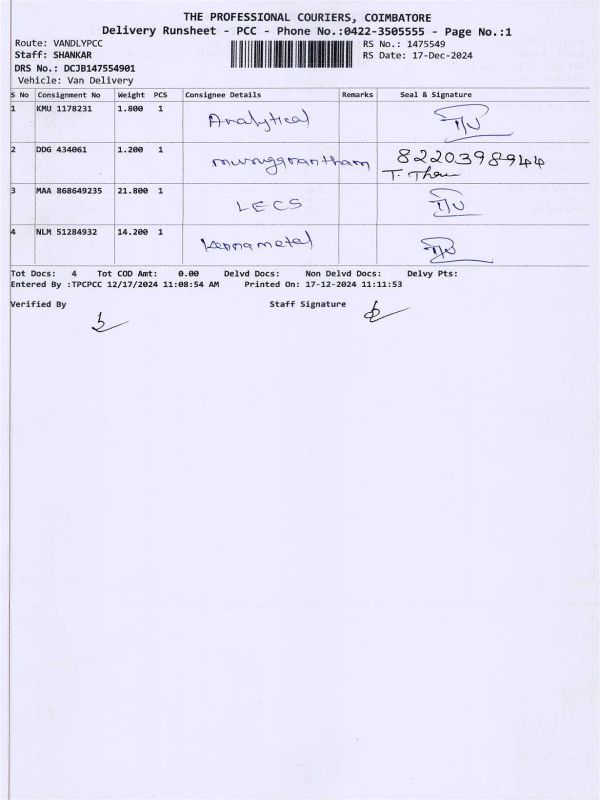 THE PROFESSIONAL COURIERS, COIMBATORE
Delivery Runsheet - PCC - Phone No.:0422-3505555 - Page No.:1
Route: VANDLYPCC RS No.: 1475549
Staff: SHANKAR RS Date: 17-Dec-2024
DRS No.: DCJB147554901
Vehicle: Van Delivery
S No Consignment No Weight PCS Consignee Details Remarks Seal & Signature
1 KMU 1178231 1.800 1 Analytical
2 DDG 434061 1.200 1 8220398944
3 MAA 868649235 21.800 1 LECS
4 NLM 51284932 14.200 1 Kennametal
Tot Docs: 4 Tot COD Amt: 0.00 Delvd Docs: Non Delvd Docs: Delvy Pts:
Entered By :TPCPCC 12/17/2024 11:08:54 AM Printed On: 17-12-2024 11:11:53
Verified By Staff Signature